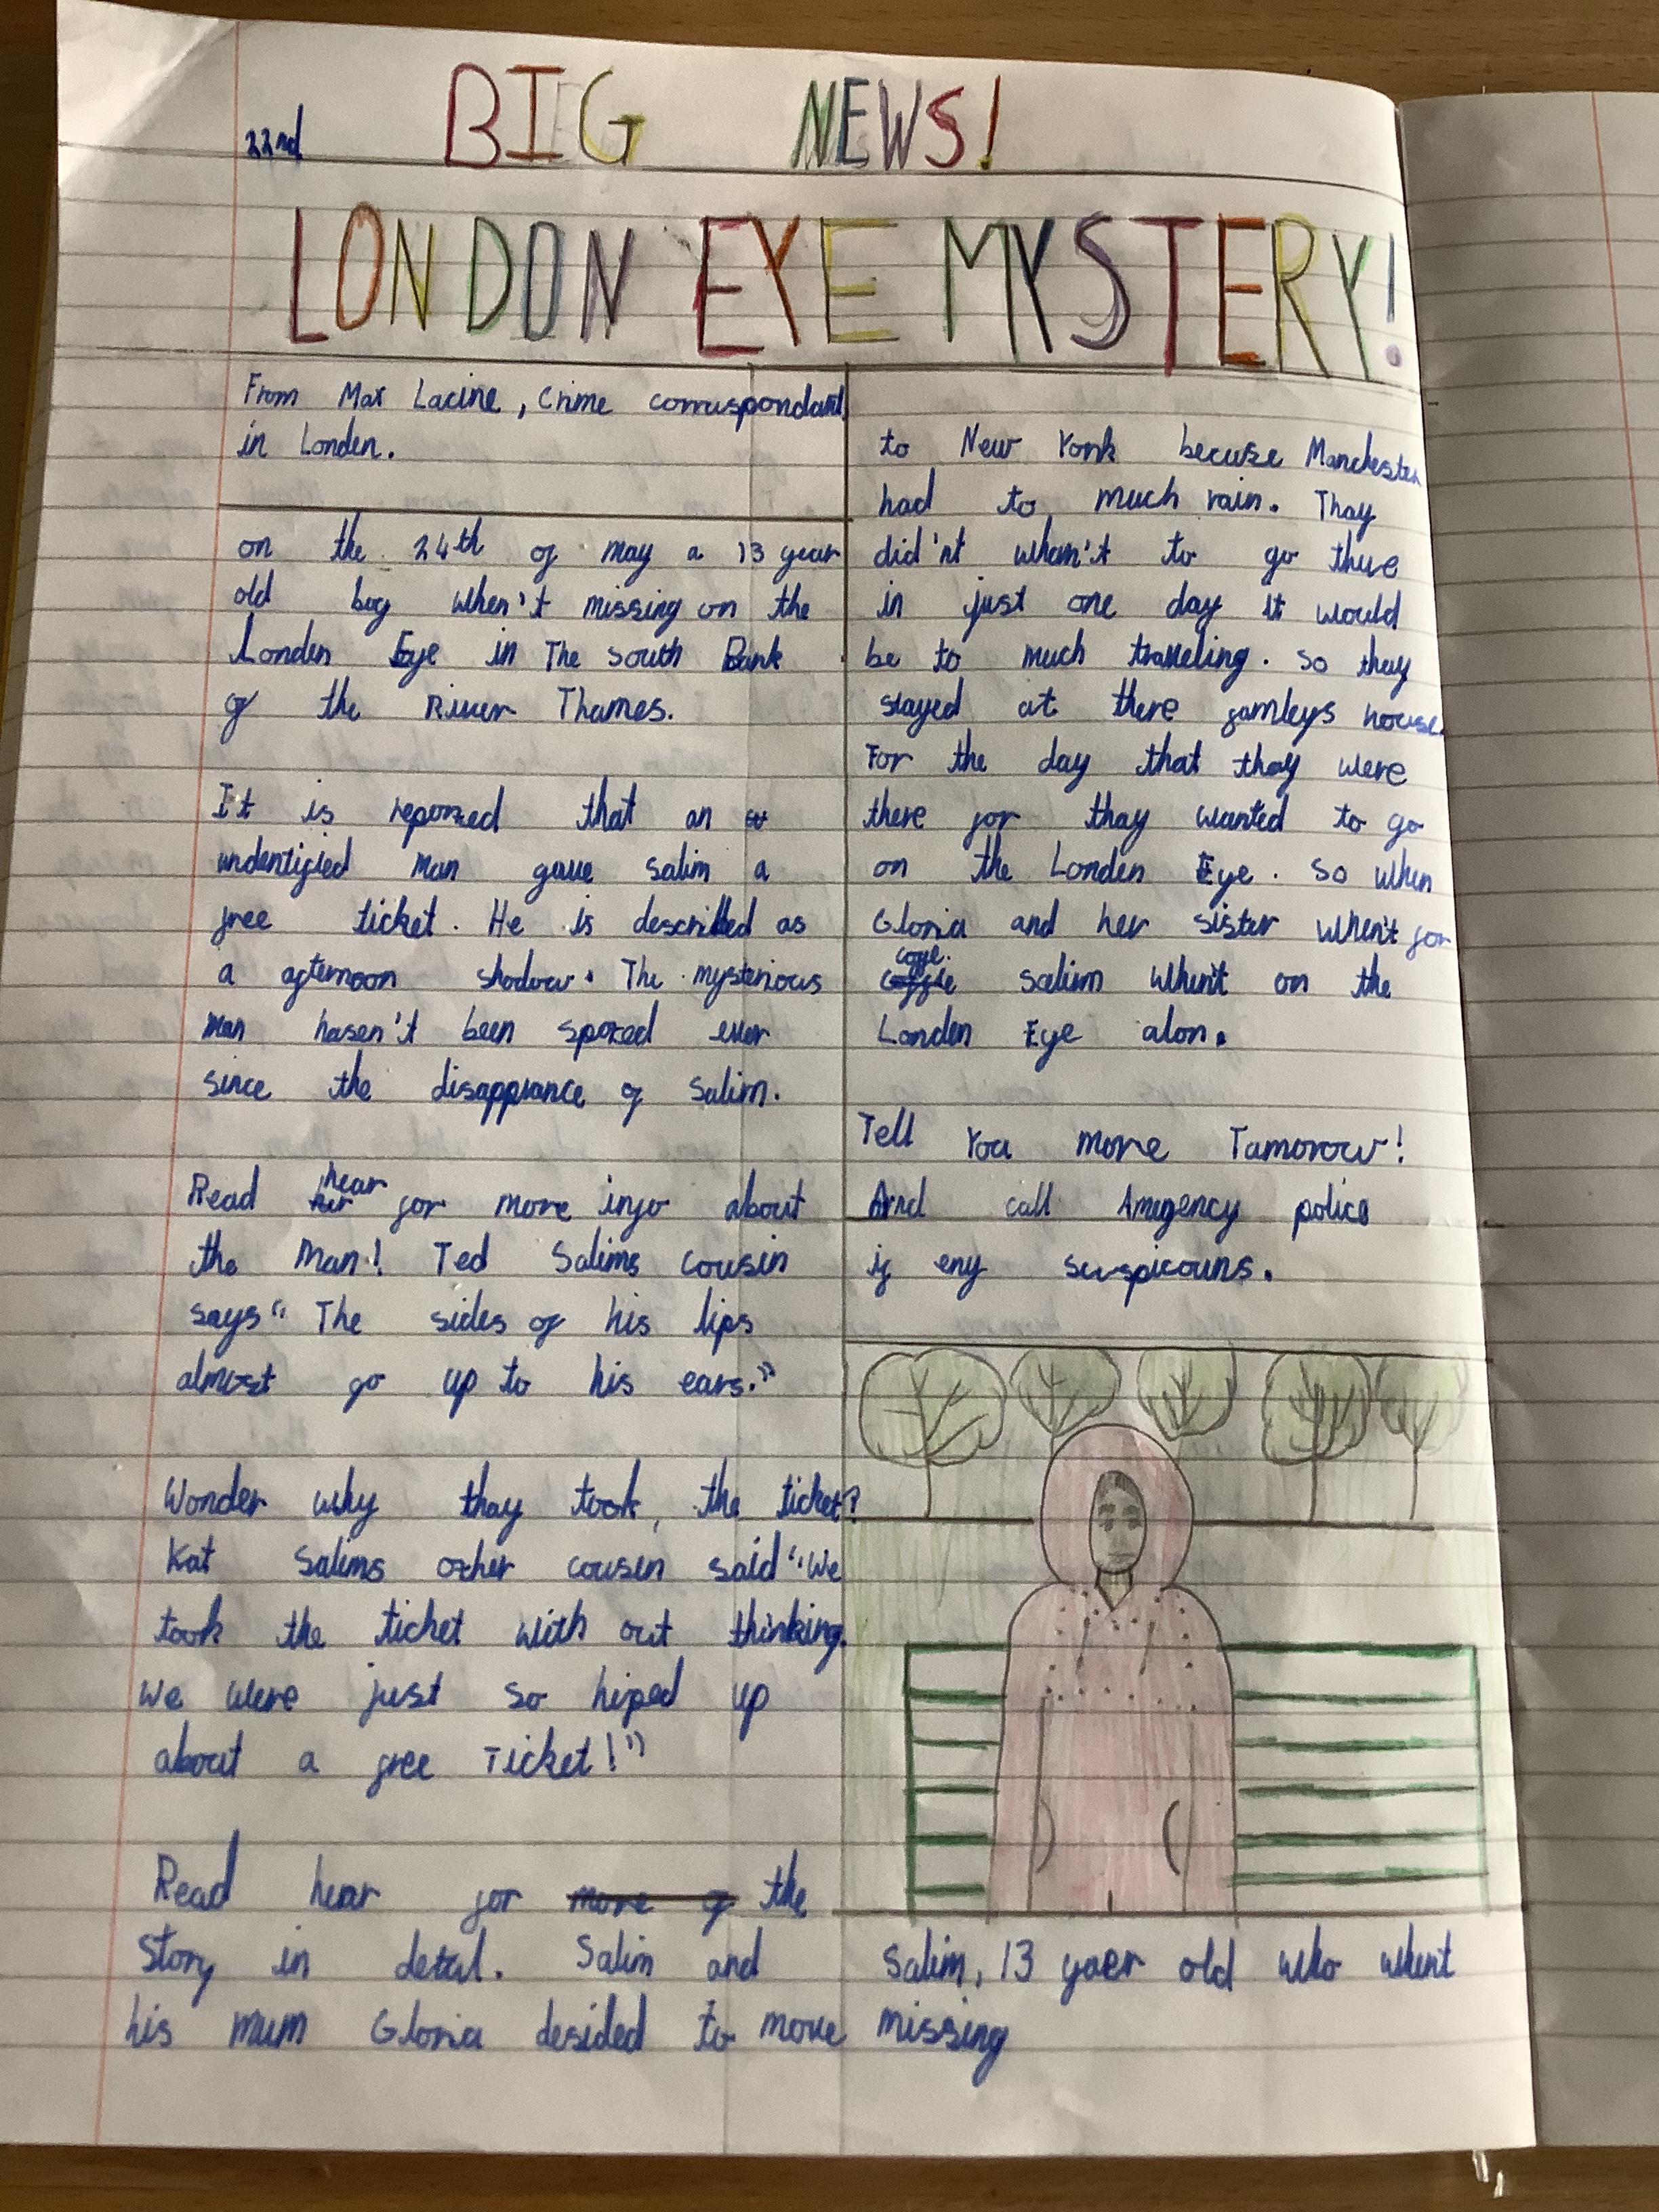 22nd
BIG NEWS!
LONDON EYE MYSTERY!
From Max Lacine, Crime corruspondant
in Londen.
on the 24th of may a 13 year
old boy when't missing on the
Londen Eye in The South Bank
of the River Thames.
It is reported that an
undentified man gave Salim a
free ticket. He is described as
a afternoon shadow. The mysterious
man hasen't been spoted ever
since the disapprance of Salim.
Read hear for more info about
the Man! Ted Salims cousin
says "The sides of his lips
almost go up to his ears."
Wonder why thay took, the ticket?
Kat Salims other cousin said "We
took the ticket with out thinking.
We were just so hiped up
about a free Ticket!"
Read hear for more of the
story in detal. Salim and
his mum Gloria desided to move
to New York becuse Manchester
had to much rain. Thay
did'nt whan't to go there
in just one day it would
be to much traveling. So thay
stayed at there famleys house.
For the day that thay were
there for thay wanted to go
on the Londen Eye. So when
Gloria and her sister when't for
coffe. Salim when't on the
Londen Eye alon.
Tell You more Tamorow!
And call Amegency police
if eny suspicouns.
Salim, 13 yaer old who whent
missing